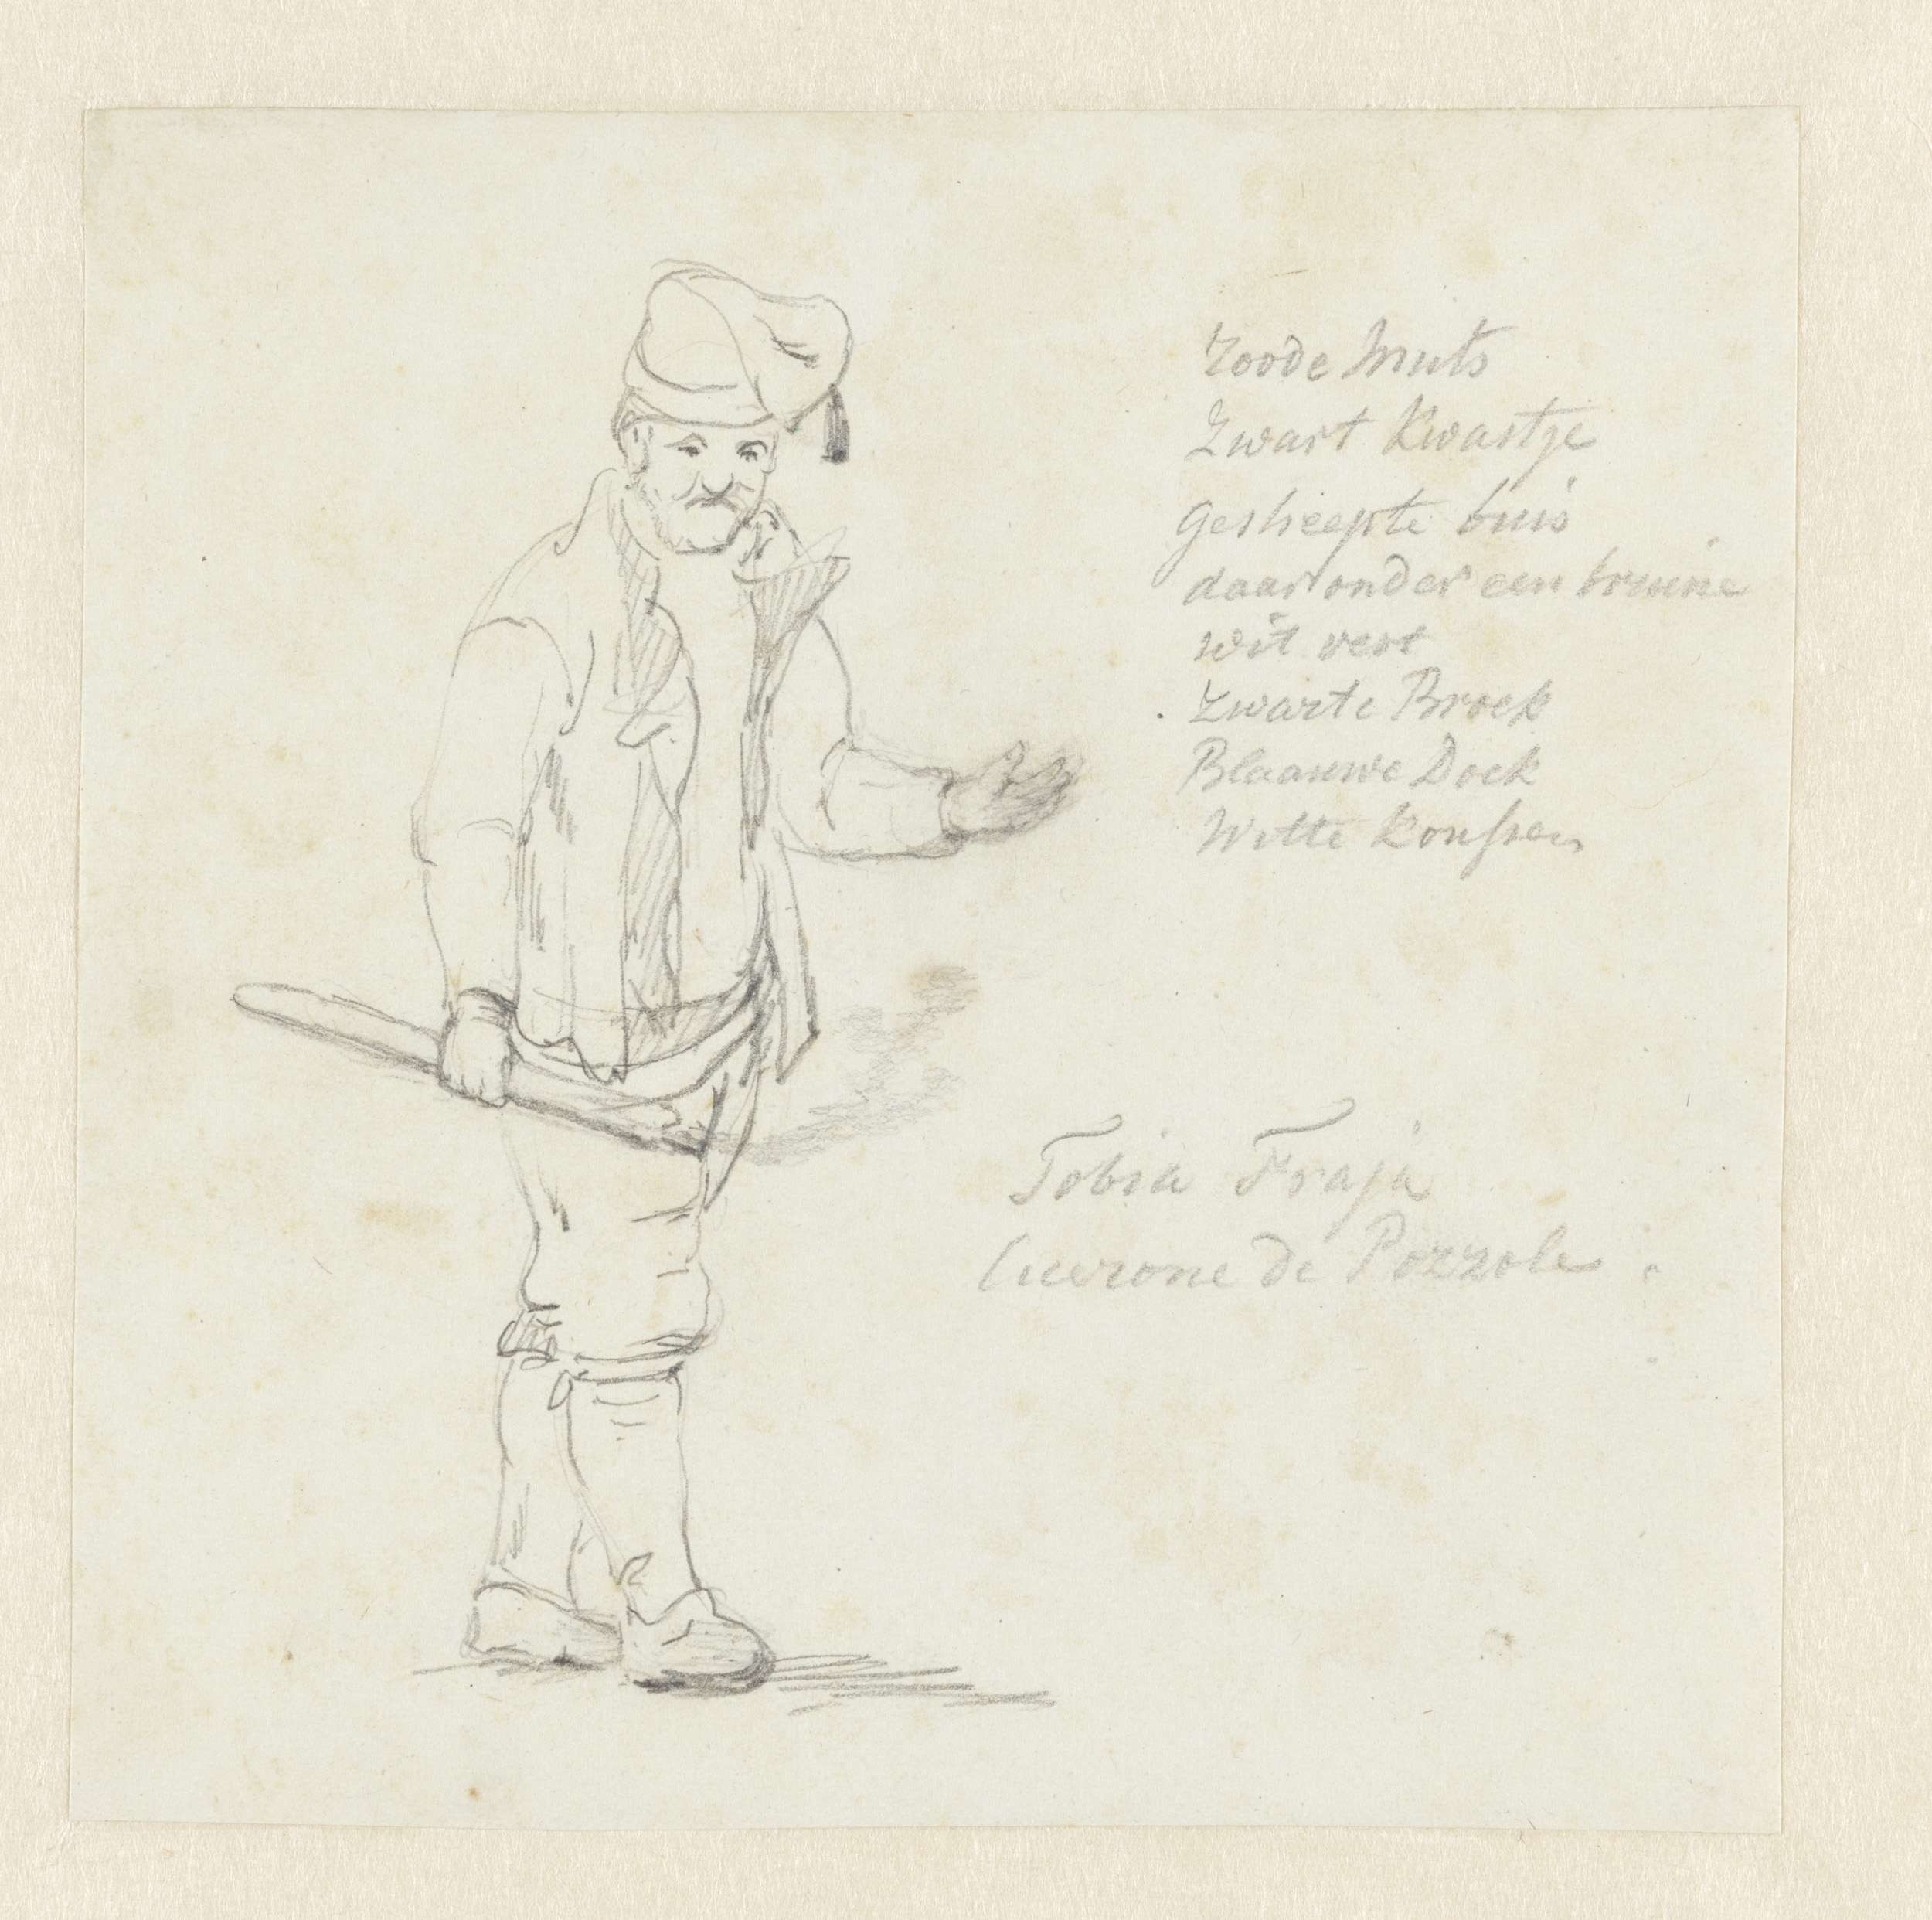 roode Muts
Zwart Kwastje
gestreepte buis
daar onder een bruine
wit vest
Zwarte Broek
Blaauwe Doek
Witte Kousen
Tobia Fraja
Cicerone di Pozzole